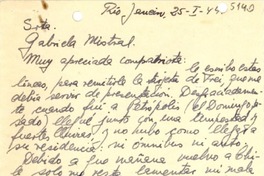 Río Janeiro, 25-I-4
5140
Srta.
Gabriela Mistral.
Muy apreciada compatriota: le escribo estas
líneas, para remitirle la tarjeta de Frei que me
debía servir de presentación. Desgraciadamente
cuando fuí a Petrópolis (el Domingo pa-
sado) llegué junto con una tempestad y
fuertes lluvias y no hubo como llegar a
su residencia: ni omnibus ni autos.
Debido a que mañana vuelvo a Chi-
le solo me resta lamentar mi mala